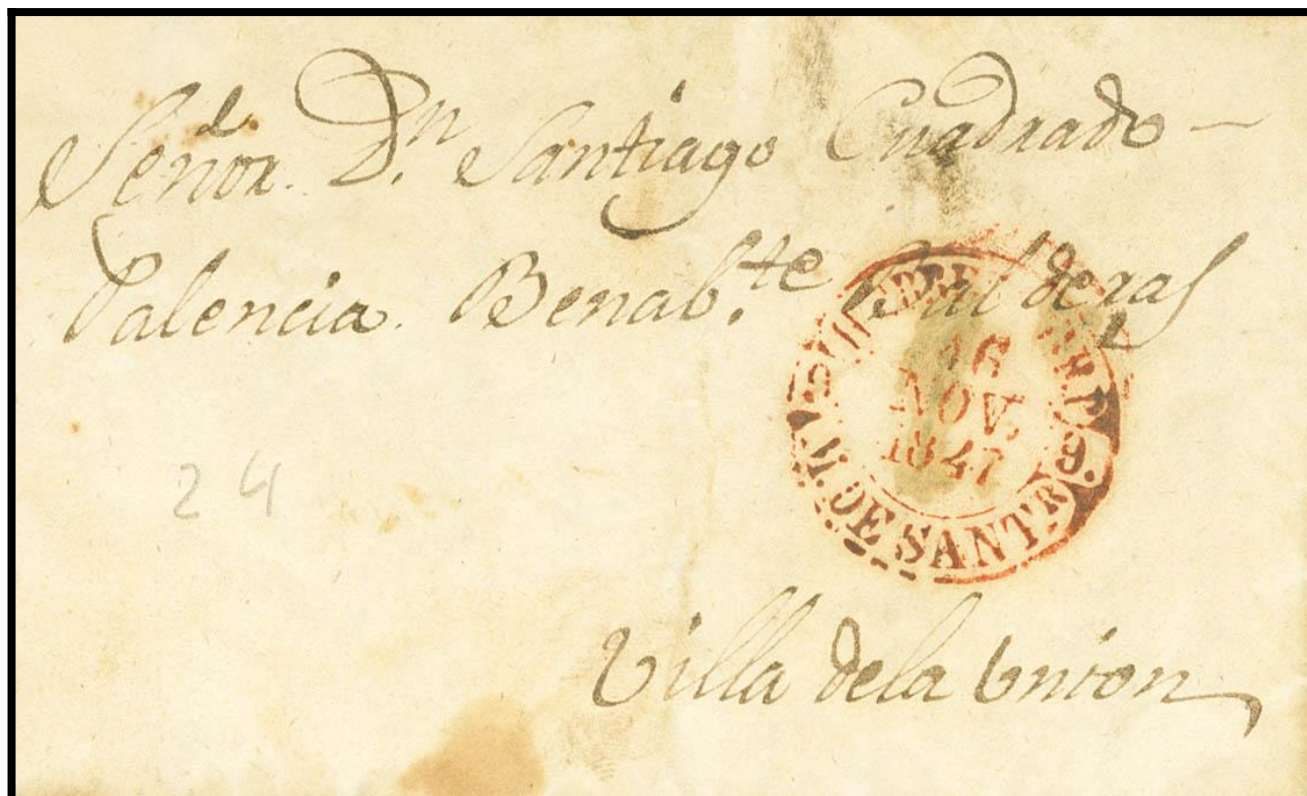 Señor. D.ⁿ Santiago Cuadrado
Palencia. Benab.te Valderas
16
NOV.
1847
M. DE SANTR
9.
24
Villa dela Union